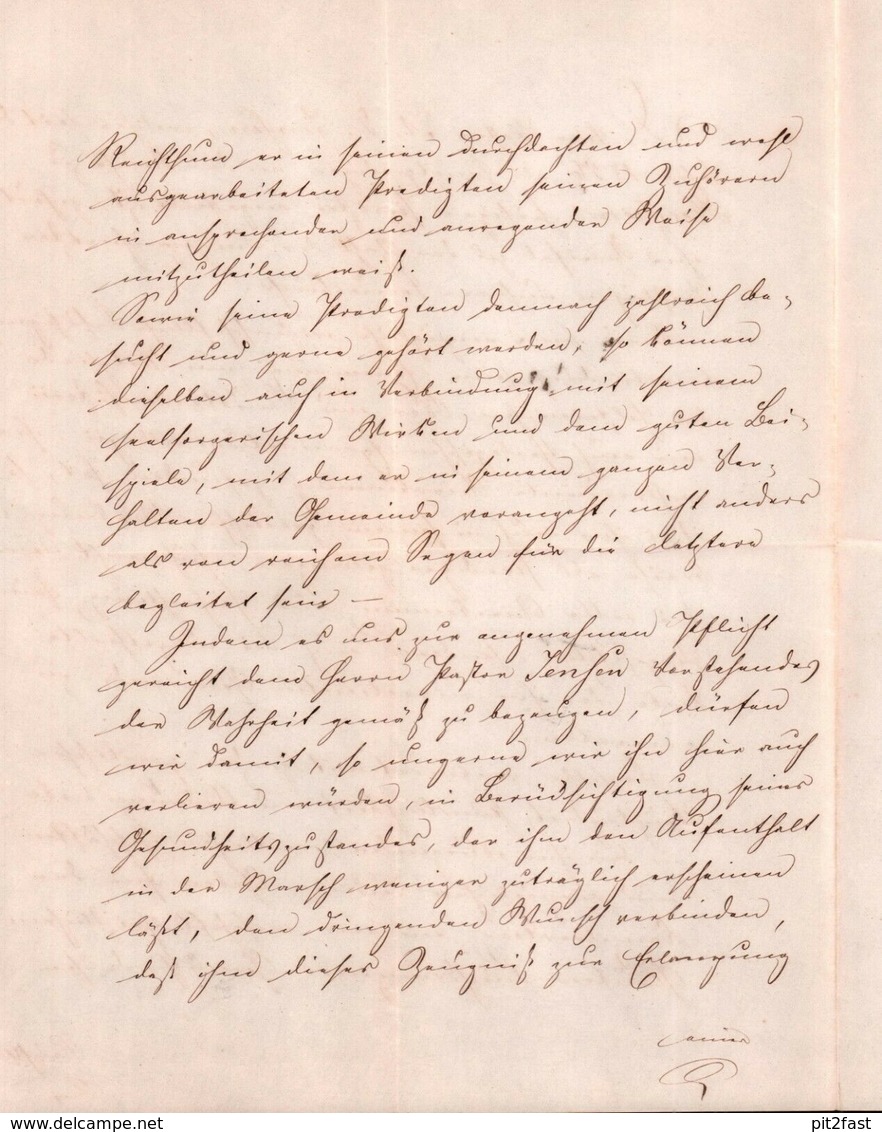 Reichthum er in seinen durchdachten und wohl
ausgearbeiteten Predigten seinen Zuhörern
in ansprechender und anregender Weise
mitzutheilen weiß.
Sowie seine Predigten demnach zahlreich be-
sucht und gerne gehört werden, so können
dieselben auch in Verbindung mit seinem
seelsorgerischen Wirken und dem guten Bei-
spiele, mit dem er in seinem ganzen Ver-
halten der Gemeinde vorangeht, nicht anders
als von reichem Segen für die letztere
begleitet sein —
Indem es uns zur angenehmen Pflicht
gereicht dem Herrn Pastor Jensen Vorstehendes
der Wahrheit gemäß zu bezeugen, dürfen
wir damit, so ungerne wir ihn hier auch
verlieren würden, in Berücksichtigung seines
Gesundheitszustandes, der ihm den Aufenthalt
in der Marsch weniger zuträglich erscheinen
läßt, den dringenden Wunsch verbinden,
daß ihm dieses Zeugniß zur Erlangung
einer
delcampe.net
pit2fast